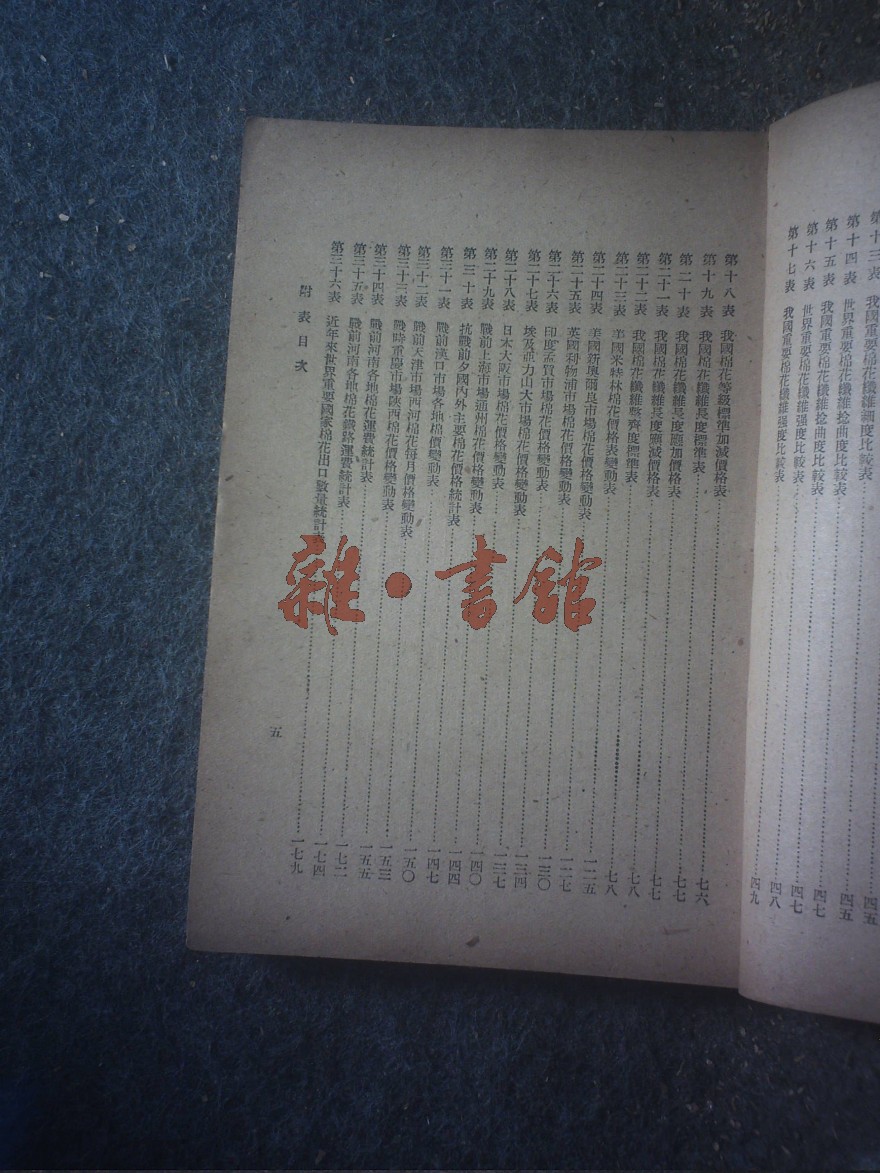 第十三表 我國重要棉花纖維細度比較表 四五
第十四表 世界重要棉花纖維捻曲度比較表 四五
第十五表 我國重要棉花纖維捻曲度比較表 四七
第十六表 世界重要棉花纖維强度比較表 四七
第十七表 我國重要棉花纖維强度比較表 四八
四九
第十八表 我國棉花等級標準加減價格表 七六
第十九表 我國棉花纖維長度標準表 七七
第二十表 我國棉花纖維長度應加價格表 七七
第二十一表 我國棉花纖維長度應減價格表 七八
第二十二表 我國棉花纖維整齊度標準表 七八
第二十三表 美國米特林棉花價格表變動表 一二五
第二十四表 美國新奧爾良市場棉花價格變動表 一二七
第二十五表 英國利物浦市場棉花價格變動表 一三〇
第二十六表 印度孟買市場棉花價格變動表 一三四
第二十七表 埃及亜力山大市場棉花價格變動表 一三七
第二十八表 日本大阪市場棉花價格變動表 一四〇
第二十九表 戰前上海市場通州棉花價格變動表 一四四
第三十表 抗戰前夕國內外主要棉花價格統計表 一四七
第三十一表 戰前漢口市場各地棉價變動表 一五〇
第三十二表 戰前天津市場西河棉花每月價格變動表 一五三
第三十三表 戰時重慶市場陝西棉花價格變動表 一五五
第三十四表 戰前河南各地棉花運費統計表 一七二
第三十五表 戰前河南各地棉花鐵路運費統計表 一七四
第三十六表 近年來世界重要國家棉花出口數量統計 一七九
附表目次
五
雜·書館